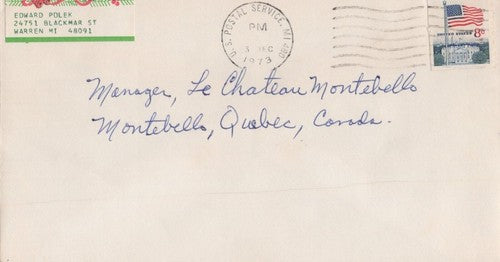 EDWARD POLEK
24751 BLACKMAR ST
WARREN MI 48091
U.S. POSTAL SERVICE, MI
PM
3 DEC
1973
8c
UNITED STATES
Manager, Le Chateau Montebello
Montebello, Quebec, Canada.